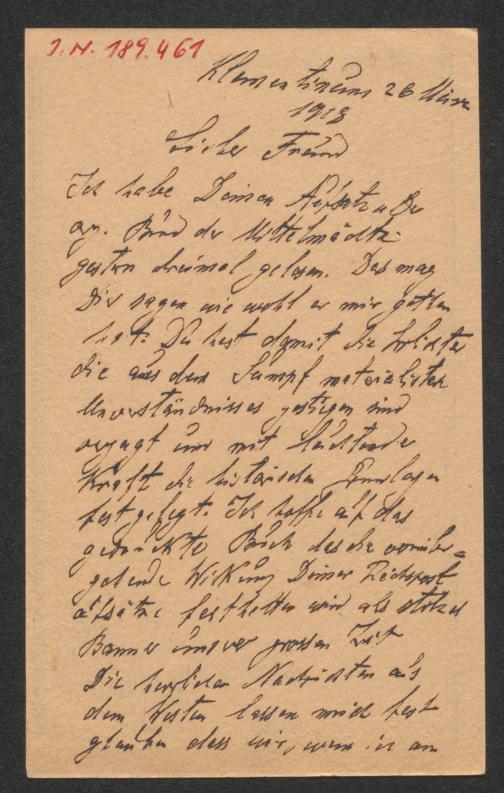 I.N. 189.461
Klementinum 26 März
1918
Lieber Freund
Ich habe Deinen Aufsatz über
org. Bund der Mittelmächte
gestern dreimal gelesen. Das mag
Dir sagen wie wohl er mir gethan
hat. Du hast damit die Irrlichter
die aus dem Sumpf materialister
Unverständnisses gestiegen sind
verjagt und mit leuchtender
Kraft die historischen Grundlagen
festgelegt. Ich hoffe auf das
gedruckte Buch das die vorüber=
gehende Wirkung Deiner Reichspost
aufsätze festhalten wird als stolzes
Banner unserer grossen Zeit
Die herrlichen Nachrichten aus
dem Westen lassen mich fest
glauben dass wir, wenn ich am